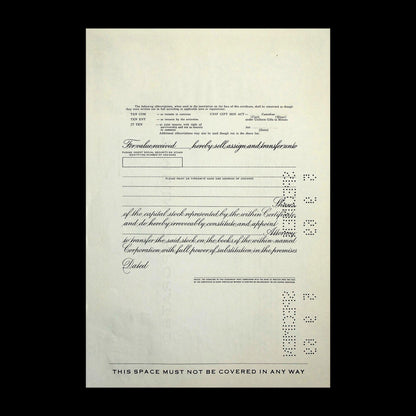 The following abbreviations, when used in the inscription on the face of this certificate, shall be construed as though
they were written out in full according to applicable laws or regulations:
TEN COM —as tenants in common UNIF GIFT MIN ACT— Custodian
TEN ENT —as tenants by the entireties (Cust) (Minor)
JT TEN —as joint tenants with right of under Uniform Gifts to Minors
survivorship and not as tenants Act
in common (State)
Additional abbreviations may also be used though not in the above list.
For value received hereby sell, assign and transfer unto
PLEASE INSERT SOCIAL SECURITY OR OTHER
IDENTIFYING NUMBER OF ASSIGNEE
PLEASE PRINT OR TYPEWRITE NAME AND ADDRESS OF ASSIGNEE
Shares
of the capital stock represented by the within Certificate,
and do hereby irrevocably constitute and appoint
Attorney
to transfer the said stock on the books of the within-named
Corporation with full power of substitution in the premises
Dated
SPECIMEN
SPECIMEN
THIS SPACE MUST NOT BE COVERED IN ANY WAY